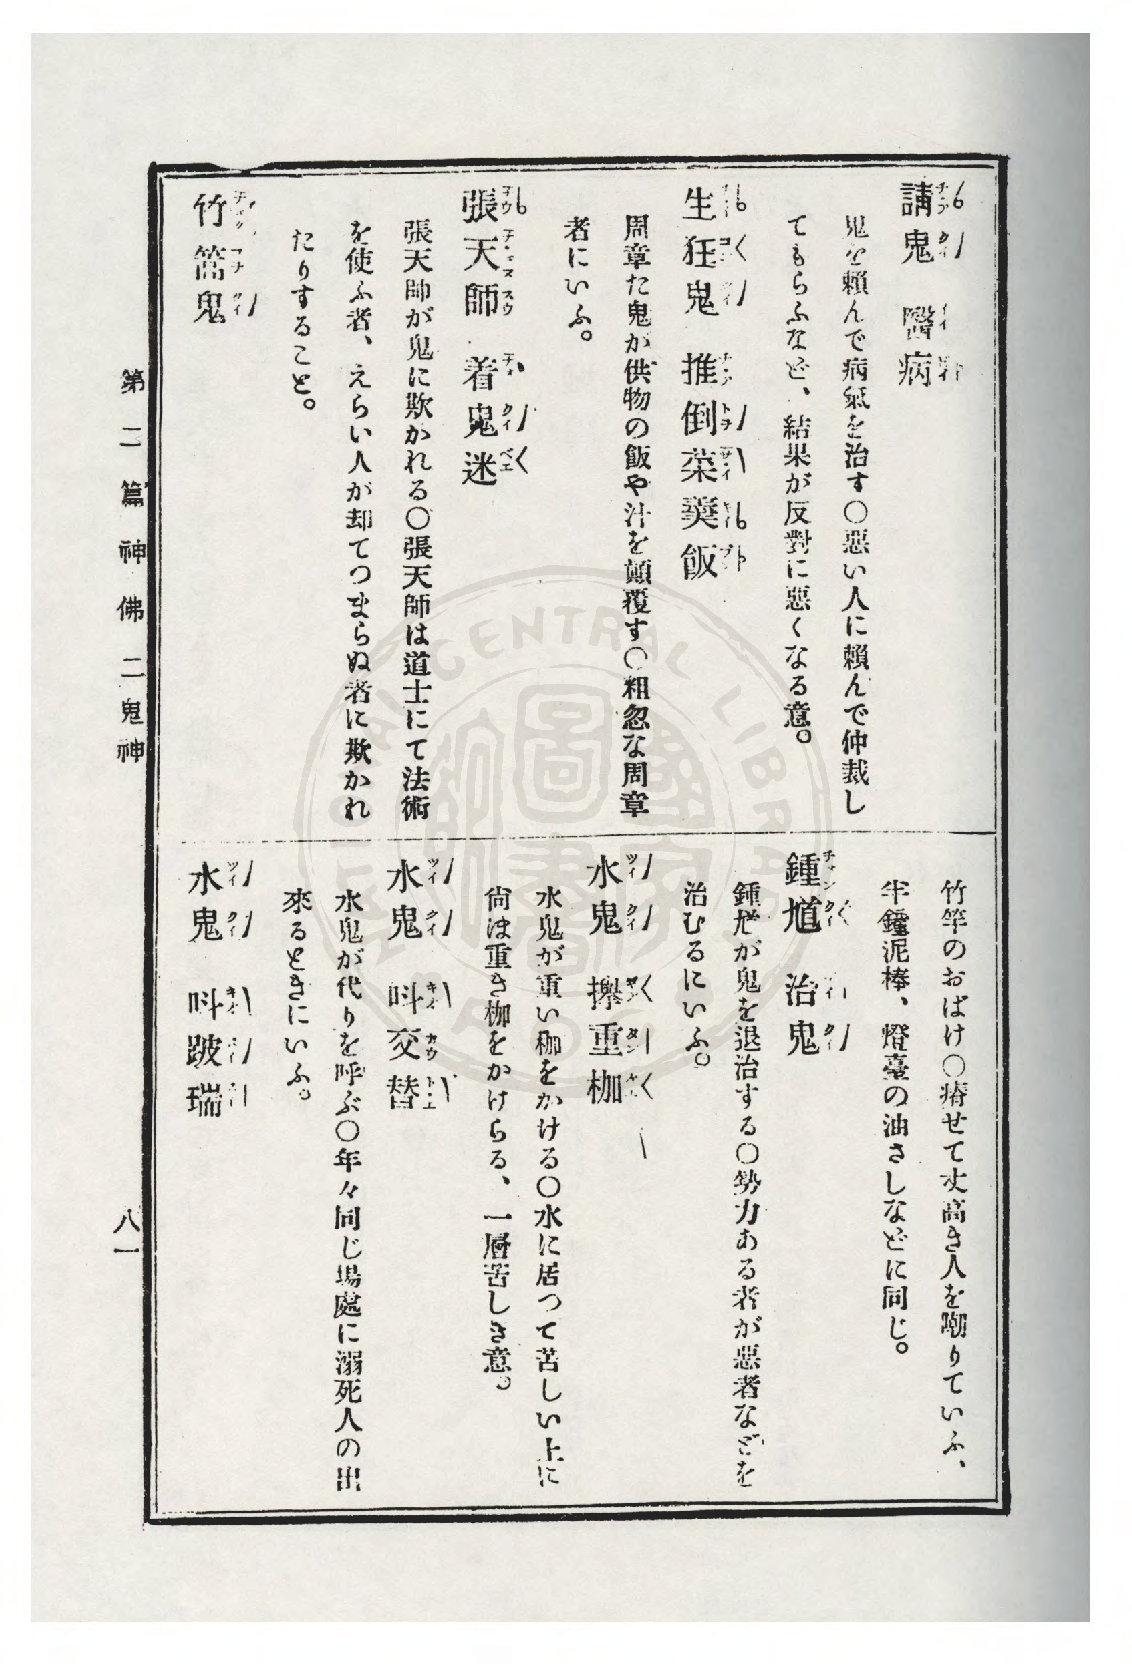 請鬼 醫病
鬼を賴んで病氣を治す〇惡い人に賴んで仲裁し
てもらふなど、結果が反對に惡くなる意。
生狂鬼 推倒菜羹飯
周章た鬼が供物の飯や汁を顚覆す〇粗忽な周章
者にいふ。
張天師 着鬼迷
張天師が鬼に欺かれる〇張天師は道士にて法術
を使ふ者、えらい人が却てつまらぬ者に欺かれ
たりすること。
竹篙鬼
竹竿のおばけ〇瘠せて丈高き人を嘲りていふ、
半鐘泥棒、燈臺の油さしなどに同じ。
鍾馗 治鬼
鍾馗が鬼を退治する〇勢力ある者が惡者などを
治むるにいふ。
水鬼 攑重枷
水鬼が重い枷をかける〇水に居つて苦しい上に
尙ほ重き枷をかけらる、一層苦しき意。
水鬼 叫交替
水鬼が代りを呼ぶ〇年々同じ場處に溺死人の出
來るときにいふ。
水鬼 叫跛瑞
第二篇 神佛 二鬼神
八一
NATIONAL CENTRAL LIBRARY